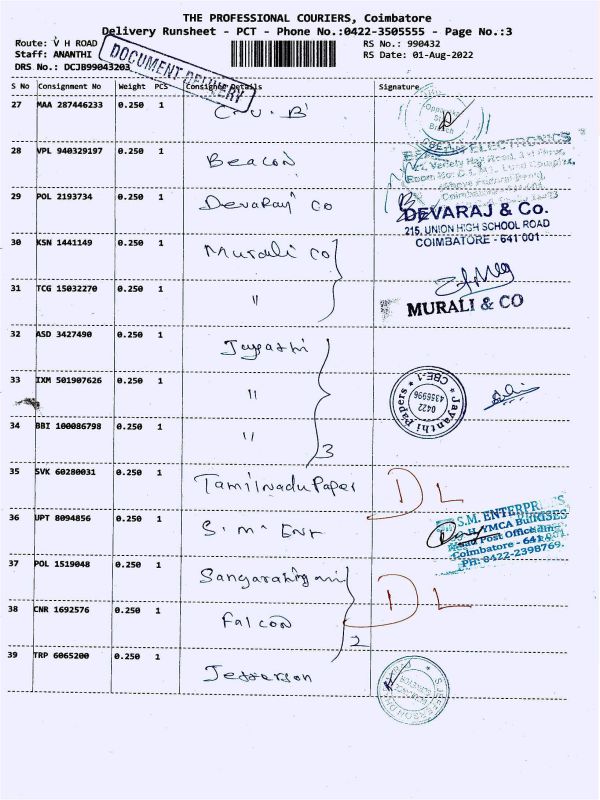 THE PROFESSIONAL COURIERS, Coimbatore
Delivery Runsheet - PCT - Phone No.:0422-3505555 - Page No.:3
Route: V H ROAD
RS No.: 990432
Staff: ANANTHI
RS Date: 01-Aug-2022
DRS No.: DCJB99043203
DOCUMENT DELIVERY
S No Consignment No Weight PCS Consignee Details Signature
27 MAA 287446233 0.250 1
28 VPL 940329197 0.250 1 Beacon
ELECTRONICS
29 POL 2193734 0.250 1 Devaraj Co
DEVARAJ & Co.
215, UNION HIGH SCHOOL ROAD
COIMBATORE - 641 001
30 KSN 1441149 0.250 1 Murali Co
31 TCG 15032270 0.250 1 "
MURALI & CO
32 ASD 3427490 0.250 1
33 IXM 501907626 0.250 1 "
Jayanthi Papers
0422
4366996
CBE-1
34 BBI 100086798 0.250 1 "
3
35 SVK 60280031 0.250 1 Tamilnadu Paper DL
36 UPT 8094856 0.250 1 S.M. Ent
S.M. ENTERPRISES
YMCA Building
Head Post Office
Coimbatore - 641 001.
PH: 0422-2398769.
37 POL 1519048 0.250 1
DL
38 CNR 1692576 0.250 1 Falcon
2
39 TRP 6065200 0.250 1 Jefferson